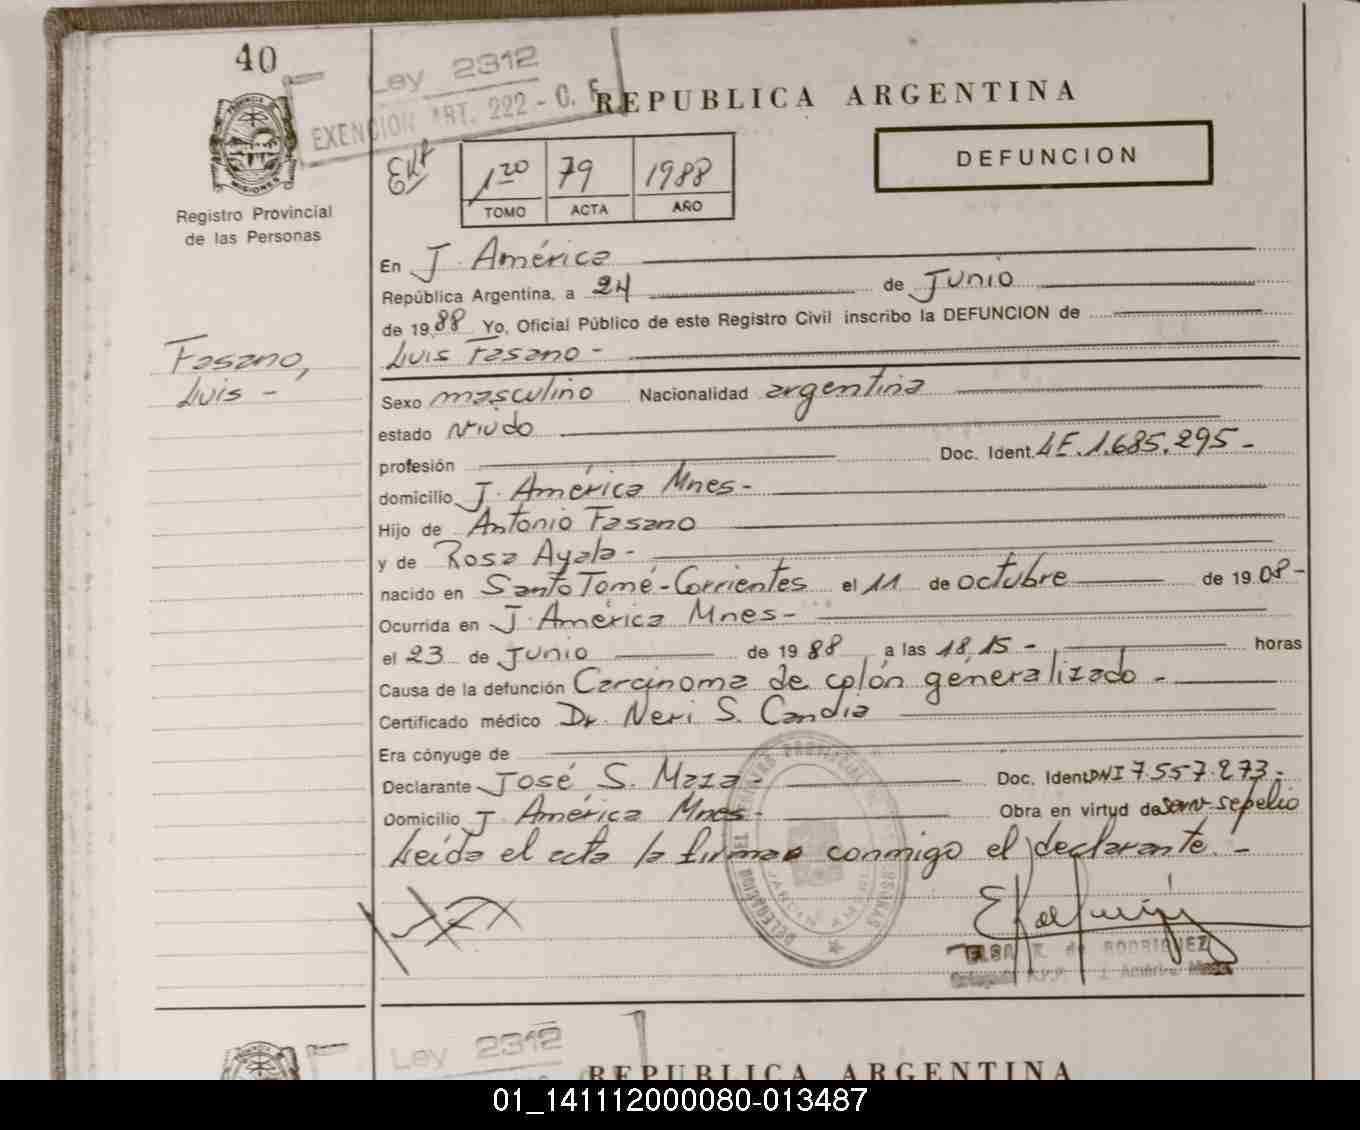 40
Ley 2312
EXENCION ART. 222 - C. F.
REPUBLICA ARGENTINA
PROVINCIA DE
MISIONES
Registro Provincial
de las Personas
1ro 79 1988
TOMO ACTA AÑO
DEFUNCION
En J. América
República Argentina, a 24 de Junio
de 1988 Yo, Oficial Público de este Registro Civil inscribo la DEFUNCION de
Luis Fasano -
Fasano,
Luis -
Sexo masculino Nacionalidad argentina
estado viudo
profesión Doc. Ident. LE. 1.685.295 -
domicilio J. América Mnes -
Hijo de Antonio Fasano
y de Rosa Ayala -
nacido en Santo Tomé - Corrientes el 11 de octubre de 1908 -
Ocurrida en J. América Mnes -
el 23 de Junio de 1988 a las 18,15 - horas
Causa de la defunción Carcinoma de colón generalizado -
Certificado médico Dr. Neri S. Candia
Era cónyuge de
Declarante José S. Maza - Doc. Ident. DNI 7.557.273 -
Domicilio J. América Mnes - Obra en virtud de serv. sepelio
Leída el acta la firman conmigo el declarante. -
ELSA K. de RODRIGUEZ
J. América
Ley 2312
REPUBLICA ARGENTINA
01_141112000080-013487